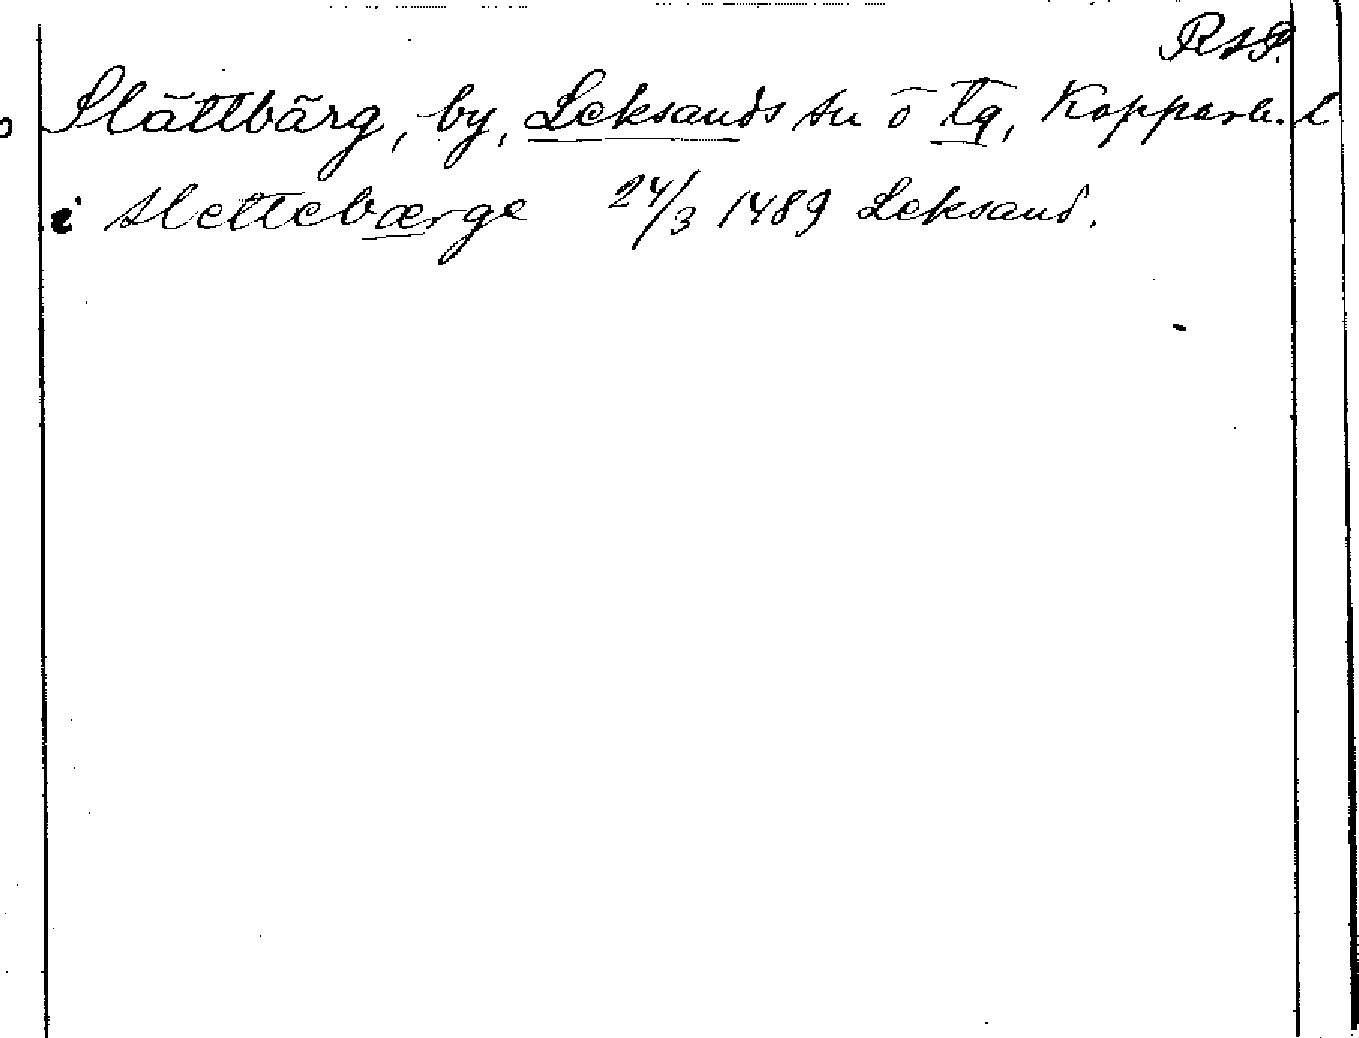 RAP.
Slättbärg, by, Leksands sn o tg, Kopparb. l
i slettebærge 24/3 1489 Leksand.